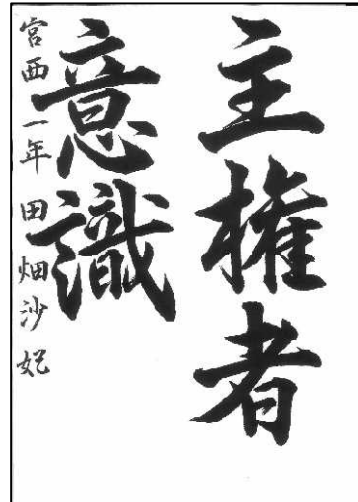 主権者
意識
宮西一年 田畑沙妃